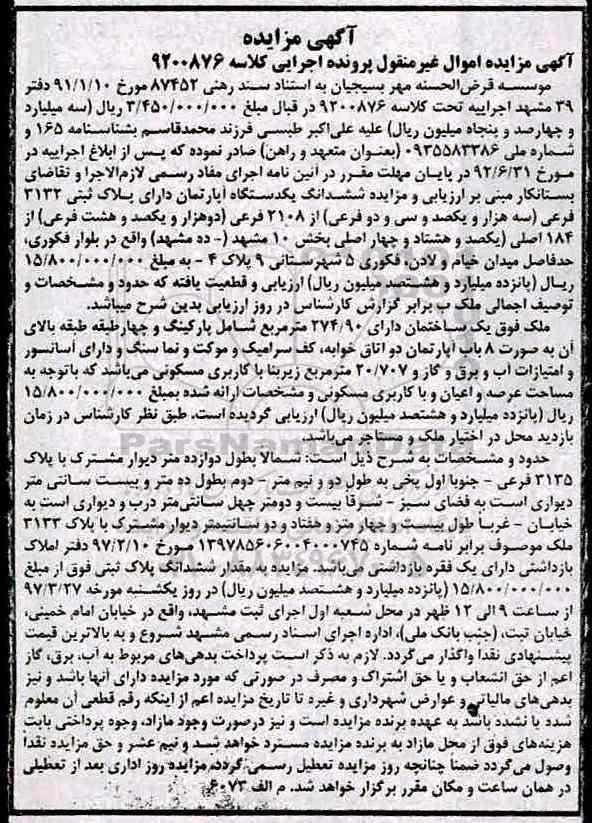 آگهی مزایده
آگهی مزایده اموال غیرمنقول پرونده اجرایی کلاسه ۹۲۰۰۸۷۶
موسسه قرض‌الحسنه مهر بسیجیان به استناد سند رهنی ۸۷۴۵۲ مورخ ۹۱/۱/۱۰ دفتر
۳۹ مشهد اجراییه تحت کلاسه ۹۲۰۰۸۷۶ در قبال مبلغ ۳/۴۵۰/۰۰۰/۰۰۰ ریال (سه میلیارد
و چهارصد و پنجاه میلیون ریال) علیه علی‌اکبر طبسی فرزند محمدقاسم بشناسنامه ۱۶۵ و
شماره ملی ۰۹۳۵۵۸۳۳۸۶ (بعنوان متعهد و راهن) صادر نموده که پس از ابلاغ اجراییه در
مورخ ۹۲/۶/۳۱ در پایان مهلت مقرر در آئین نامه اجرای مفاد رسمی لازم‌الاجرا و تقاضای
بستانکار مبنی بر ارزیابی و مزایده ششدانگ یکدستگاه آپارتمان دارای پلاک ثبتی ۳۱۳۲
فرعی (سه هزار و یکصد و سی و دو فرعی) از ۲۱۰۸ فرعی (دوهزار و یکصد و هشت فرعی) از
۱۸۴ اصلی (یکصد و هشتاد و چهار اصلی بخش ۱۰ مشهد (- ده مشهد) واقع در بلوار فکوری،
حدفاصل میدان خیام و لادن، فکوری ۵ شهرستانی ۹ پلاک ۴ - به مبلغ ۱۵/۸۰۰/۰۰۰/۰۰۰
ریال (پانزده میلیارد و هشتصد میلیون ریال) ارزیابی و قطعیت یافته که حدود و مشخصات و
توصیف اجمالی ملک ب برابر گزارش کارشناس در روز ارزیابی بدین شرح میباشد.
ملک فوق یک ساختمان دارای ۲۷۴/۹۰ مترمربع شامل پارکینگ و چهارطبقه طبقه بالای
آن به صورت ۸ باب آپارتمان دو اتاق خوابه، کف سرامیک و موکت و نما سنگ و دارای آسانسور
و امتیازات آب و برق و گاز و ۲۰/۷۰۷ مترمربع زیربنا با کاربری مسکونی می‌باشد که باتوجه به
مساحت عرصه و اعیان و با کاربری مسکونی و مشخصات ارائه شده بمبلغ ۱۵/۸۰۰/۰۰۰/۰۰۰
ریال (پانزده میلیارد و هشتصد میلیون ریال) ارزیابی گردیده است، طبق نظر کارشناس در زمان
بازدید محل در اختیار ملک و مستاجر می‌باشد.
حدود و مشخصات به شرح ذیل است: شمالا بطول دوازده متر دیوار مشترک با پلاک
۳۱۳۵ فرعی - جنوبا اول پخی به طول دو و نیم متر - دوم بطول ده متر و بیست سانتی متر
دیواری است به فضای سبز - شرقا بیست و دومتر چهل سانتی‌متر درب و دیواری است به
خیابان - غربا طول بیست و چهار متر و هفتاد و دو سانتیمتر دیوار مشترک با پلاک ۳۱۳۳
ملک موصوف برابر نامه شماره ۱۳۹۷۸۵۶۰۶۰۰۴۰۰۰۷۴۵ مورخ ۹۷/۲/۱۰ دفتر املاک
بازداشتی دارای یک فقره بازداشتی می‌باشد. مزایده به مقدار ششدانگ پلاک ثبتی فوق از مبلغ
۱۵/۸۰۰/۰۰۰/۰۰۰ (پانزده میلیارد و هشتصد میلیون ریال) در روز یکشنبه مورخه ۹۷/۳/۲۷
از ساعت ۹ الی ۱۲ ظهر در محل شعبه اول اجرای ثبت مشهد، واقع در خیابان امام خمینی،
خیابان ثبت، (جنب بانک ملی)، اداره اجرای اسناد رسمی مشهد شروع و به بالاترین قیمت
پیشنهادی نقدا واگذار می‌گردد. لازم به ذکر است پرداخت بدهی‌های مربوط به آب، برق، گاز
اعم از حق انشعاب و یا حق اشتراک و مصرف در صورتی که مورد مزایده دارای آنها باشد و نیز
بدهی‌های مالیاتی و عوارض شهرداری و غیره تا تاریخ مزایده اعم از اینکه رقم قطعی آن معلوم
شده یا نشده باشد به عهده برنده مزایده است و نیز درصورت وجود مازاد، وجوه پرداختی بابت
هزینه‌های فوق از محل مازاد به برنده مزایده مسترد خواهد شد و نیم عشر و حق مزایده نقداً
وصول می‌گردد ضمناً چنانچه روز مزایده تعطیل رسمی گردد، مزایده روز اداری بعد از تعطیلی
در همان ساعت و مکان مقرر برگزار خواهد شد. م الف ۶۰۷۳